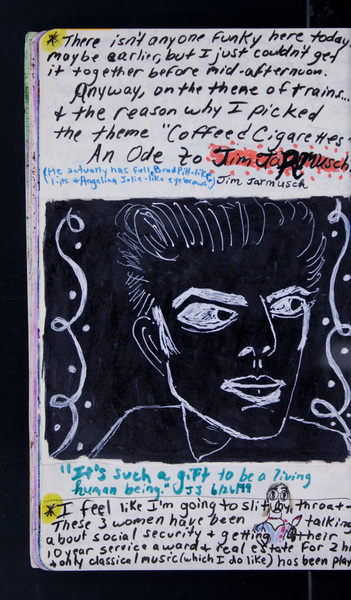 * There isn't anyone funky here today
maybe earlier, but I just couldn't get
it together before mid-afternoon.
Anyway, on the theme of trains...
+ the reason why I picked
the theme "Coffee & Cigarettes"
An Ode To Jim Jarmusch
(He actually has full, Brad Pitt-like
lips + Angelina Jolie-like eyebrows) Jim Jarmusch
"It's such a gift to be a living
human being." JJ 6/26/99
* I feel like I'm going to slit my throat-
These 3 women have been talking
about social security + getting their
10 year service award + real estate for 2 h
+ only classical music (which I do like) has been play